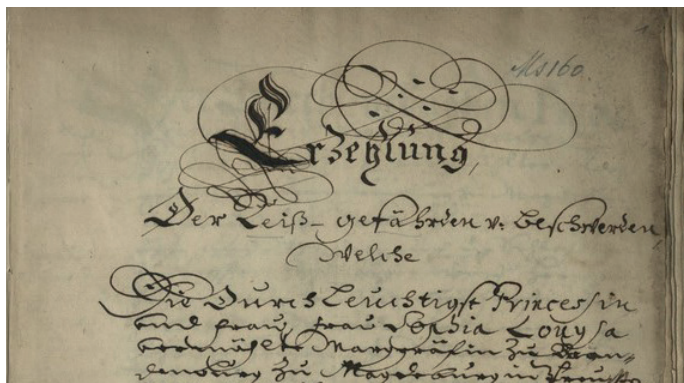 Ms 160.
Erzehlung,
Der Reiß- gefährden v: beschwerden,
Welche
Die Durchleuchtigst Princessin
und frau, frau Sophia Louysa
vermählte Marggräfin zu Bran-
denburg zu Magdeburg in